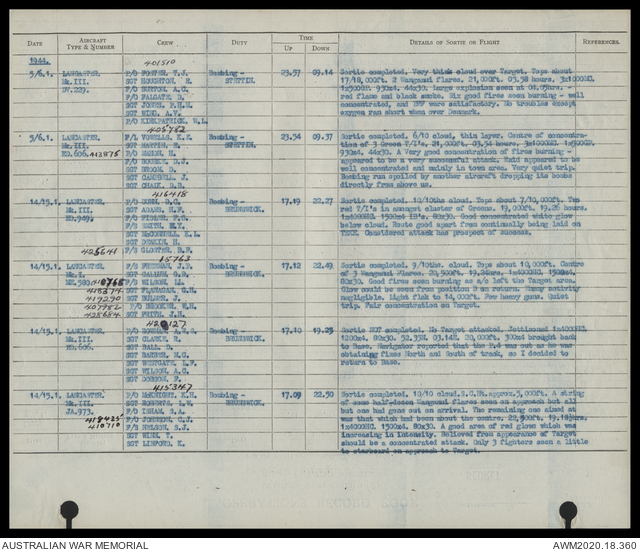 DATE AIRCRAFT TYPE & NUMBER CREW DUTY TIME UP DOWN DETAILS OF SORTIE OR FLIGHT REFERENCES.
1944.
401510
5/6.1. LANCASTER P/O FOSTER, T.J. Bombing - 23.57 09.14 Sortie completed. Very thick cloud over Target. Tops about
Mk.III. SGT HOUGHTON, R. STETTIN. 17/18,000ft. 2 Wanganui flares. 21,000ft. 03.58 hours. 1x4000HC.
DV.229. F/O BURTON, A.G. 1x500GP. 930x4. 44x30. Large explosion seen at 04.05hrs. -
F/O PALGATE, D. red flame and black smoke. Six good fires seen burning - well
SGT JONES, P.H.H. concentrated, and PFF were satisfactory. No troubles except
SGT WING, A.V. oxygen ran short when over Denmark.
F/O KIRKPATRICK, W.L.
405782
5/6.1. LANCASTER. F/L VOWELLS, K.K. Bombing - 23.54 09.37 Sortie completed. 6/10 cloud, thin layer. Centre of concentra-
Mk.III. SGT MARTIN, E. STETTIN. tion of 3 Green T/I's, 21,000ft. 03.54 hours. 1x4000HC. 1x500GP.
ED.606. 413875 F/O MASON, H. 930x4. 44x30. A Very good concentration of fires burning -
appeared to be a very successful attack. Raid appeared to be
SGT BROOM, D. well concentrated and mainly in town area. Very quiet trip.
SGT CAMPBELL, J. Bombing run spoiled by another aircraft dropping its bombs
SGT CHALK, D.B. directly from above us.
416418
14/15.1. LANCASTER. F/O DUNN, D.C. Bombing - 17.19 22.27 Sortie completed. 10/10ths cloud. Tops about 7/10,000ft. Two
Mk.III. SGT ADAMS, H.F. BRUNSWICK. red T/I's in amongst cluster of Greens. 19,000ft. 19.26 hours.
ED.949. 1x4000HC, 1500x4 IB's. 80x30. Good concentrated white glow
F/S SMITH, below cloud. Route good apart from continually being laid on
SGT MACDONNELL, TRCK. Considered attack has prospect of success.
SGT DEAKIN, H.
425641 F/S GLOSTER, R.F.
15763
14/15.1. LANCASTER. F/S FREEMAN, J.D. Bombing - 17.12 22.49. Sortie completed. 9/10ths. cloud. Tops about 10,000ft. Centre
Mk.I. SGT GALLUP, G.R. BRUNSWICK. of 3 Wanganui Flares. 20,500ft. 19.24hrs. 1x4000HC. 1500x4.
ME.580 410768 F/S WILSON, LL. 80x30. Good fires seen burning as a/c left the Target area.
418374 SGT FLANAGAN, G.H. Glow could be seen from position B on return. Enemy activity
419290 SGT BULMER, J. negligible. Light flak to 14,000ft. Few heavy guns. Quiet
407982 P/O BROOKER, W.H. trip. Fair concentration on Target.
425684 SGT FRITH, J.H.
420127
14/15.1. LANCASTER. P/O BOWMAN, Bombing - 17.10 19.25 Sortie NOT completed. No Target attacked. Jettisoned 1x4000HC,
Mk.III. SGT CLARKE, R. BRUNSWICK. 1200x4, 80x30. 52.35N. 03.14E. 20,000ft. 300x4 brought back
ED.606. SGT BALL, D. to Base. Navigator reported that the P.4 was out as he was
SGT BARKER, H.G. obtaining fixes North and South of track, so I decided to
SGT WESTGATE, L.F. return to Base.
SGT WILSON, A.G.
SGT DOBSON, F.
415347
14/15.1. LANCASTER. P/O McKNIGHT, K.H. Bombing - 17.09 22.50 Sortie completed. 10/10 cloud. S.C.Bt. approx. 5,000ft. A string
Mk.III. SGT ROBERTS, L.W. BRUNSWICK. of some half-dozen Wanganui flares seen on approach but all
JA.973. F/O ISHAM, S.A. but one had gone out on arrival. The remaining one aimed at
418425 F/O JOHNSON, C.J. was that which had been about the centre. 22,500ft. 19.18hrs.
410710 F/S NELSON, S.J. 1x4000HC, 1500x4, 80x30. A good area of red glow which was
SGT WINK, T. increasing in intensity. Believed from appearance of Target
SGT LINFORD, K. should be a concentrated attack. Only 3 fighters seen a little
to starboard on approach to Target.
AUSTRALIAN WAR MEMORIAL AWM2020.18.360